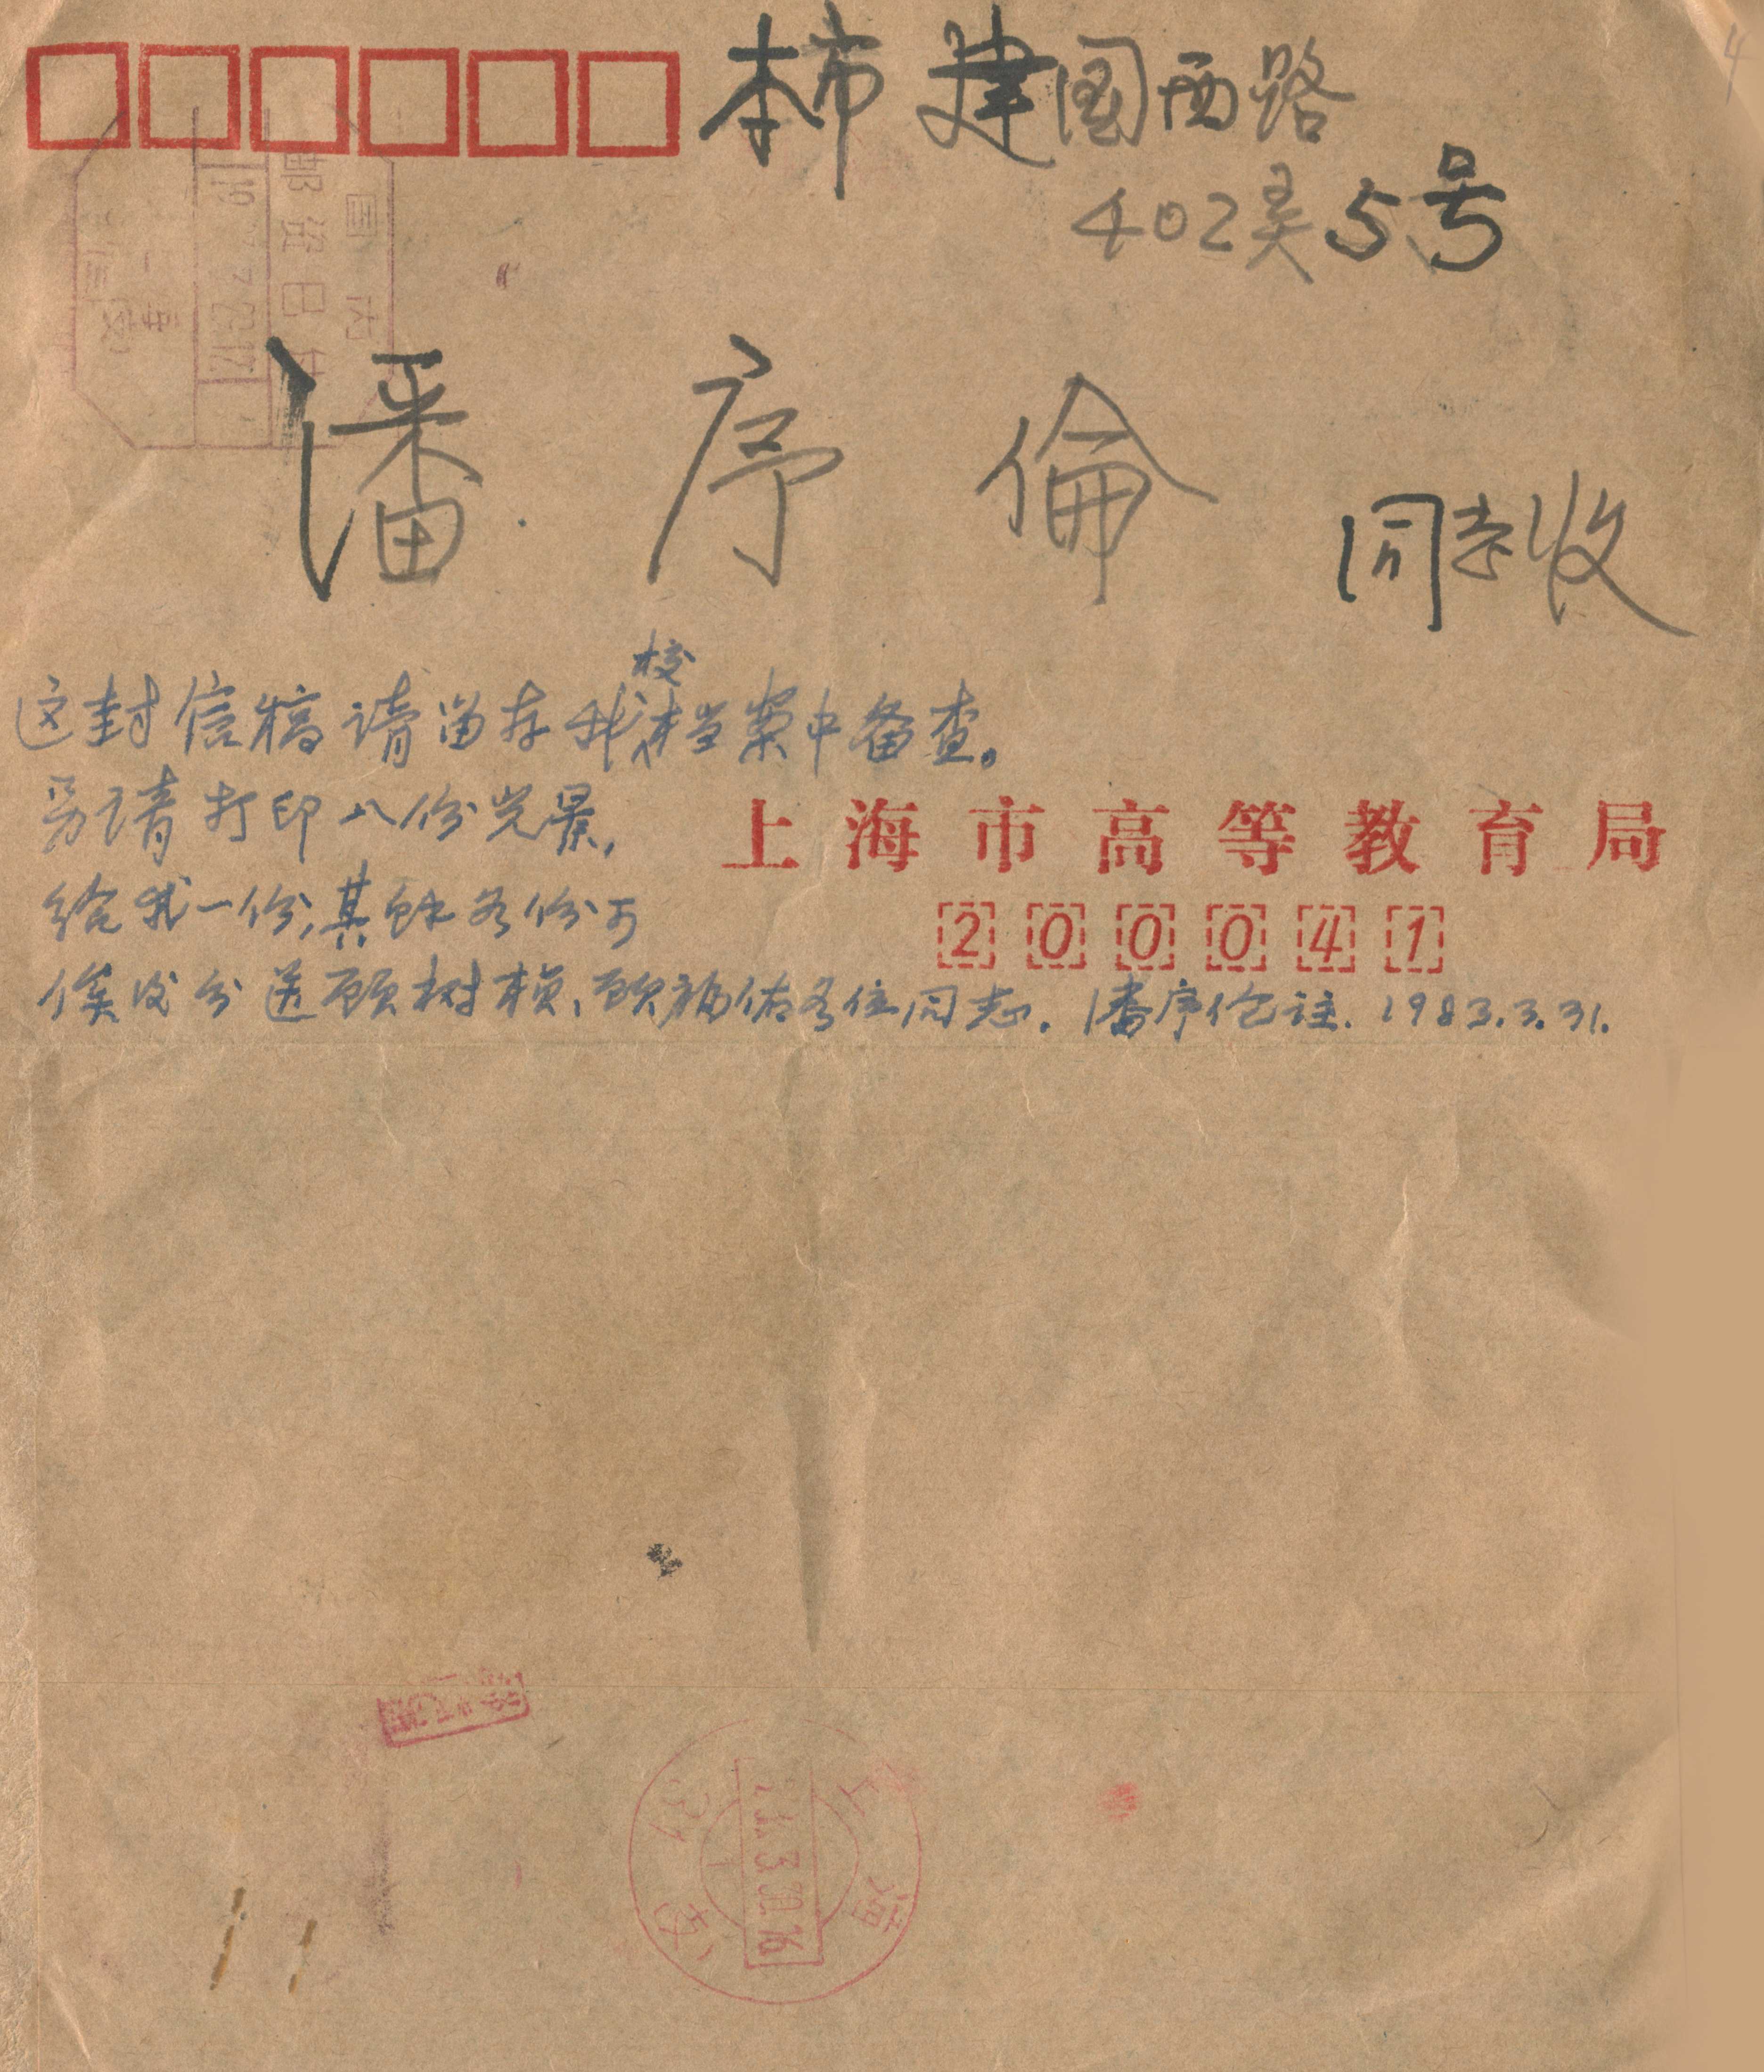 本市建国西路
402弄5号
潘序倫 同志收
这封信稿请留存我校档案中备查。
另请打印八份光景,
给我一份,其余各份可
俟后分送顾树桢、顾福佑各位同志. 潘序伦注. 1983.3.31.
上海市高等教育局
200041
国内
邮资已付
上海